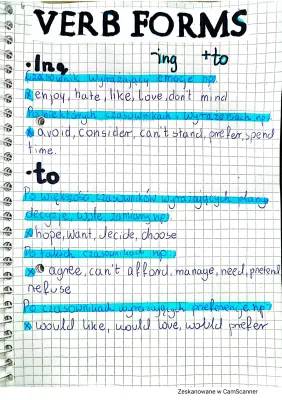 VERB FORMS
-ing +to
•Ing
czasownik wyrażający emocje np
enjoy, hate, like, love, don't mind
Po niektórych czasownikach wyrażeniach np
avoid, consider, can't stand, prefer, spend
time.
•to
Po większości czasowników wyrażających plany
decyzje, wole zamiary np
hope, want, decide, choose
Po takich czasownikach np
agree, can't afford, manage, need, pretend
refuse
Po czasownikach wyrażających preferencje np
would like, would love, would prefer
Zeskanowane w CamScanner